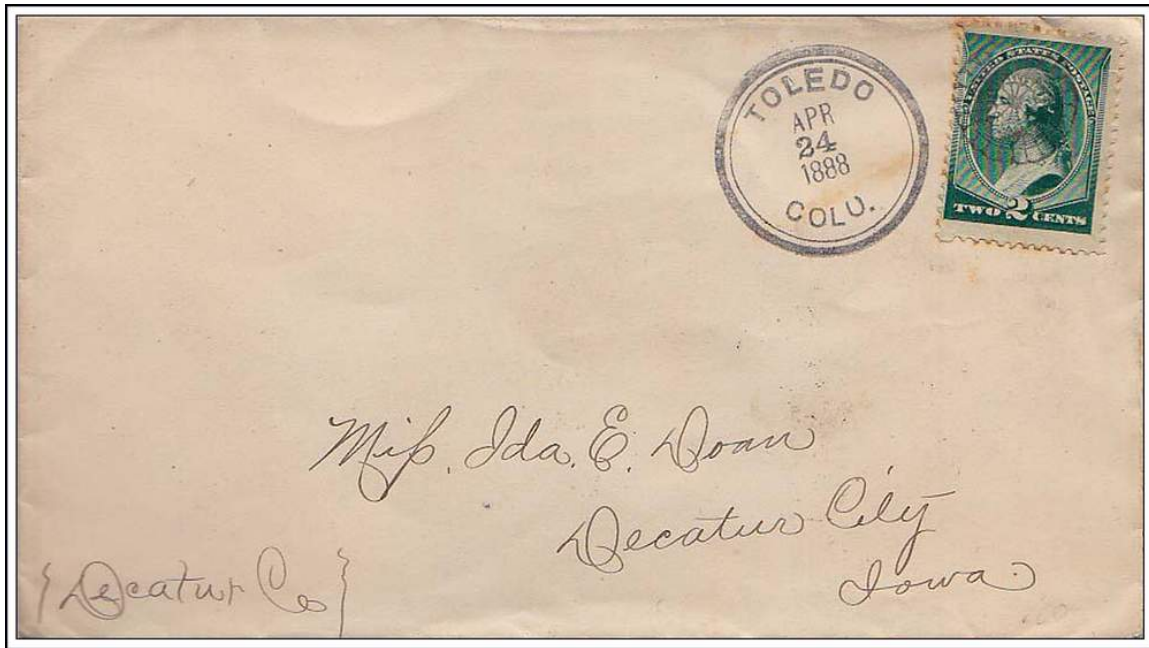 TOLEDO
APR
24
1888
COLU.
UNITED STATES POSTAGE
TWO 2 CENTS
Miſs. Ida. E. Doan
Decatur City
Iowa.
{Decatur Co}